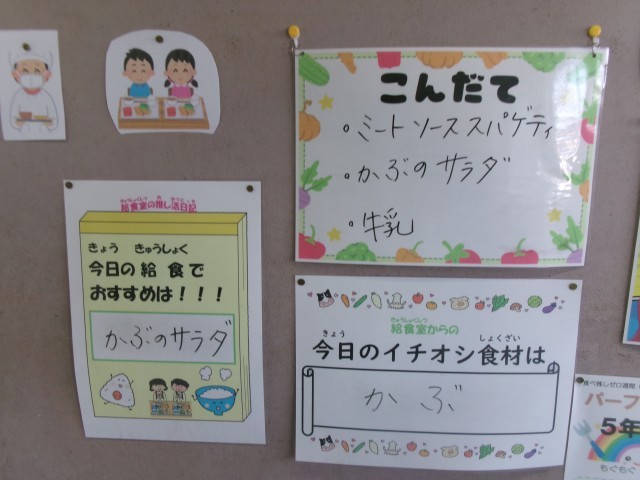 こんだて
・ミートソーススパゲティ
・かぶのサラダ
・牛乳
給食室の推し活日記
きょう きゅうしょく
今日の給食で
おすすめは！！！
かぶのサラダ
きゅうしょくしつ
給食室からの
きょう しょくざい
今日のイチオシ食材は
かぶ
パーフ
5年
もぐもぐ